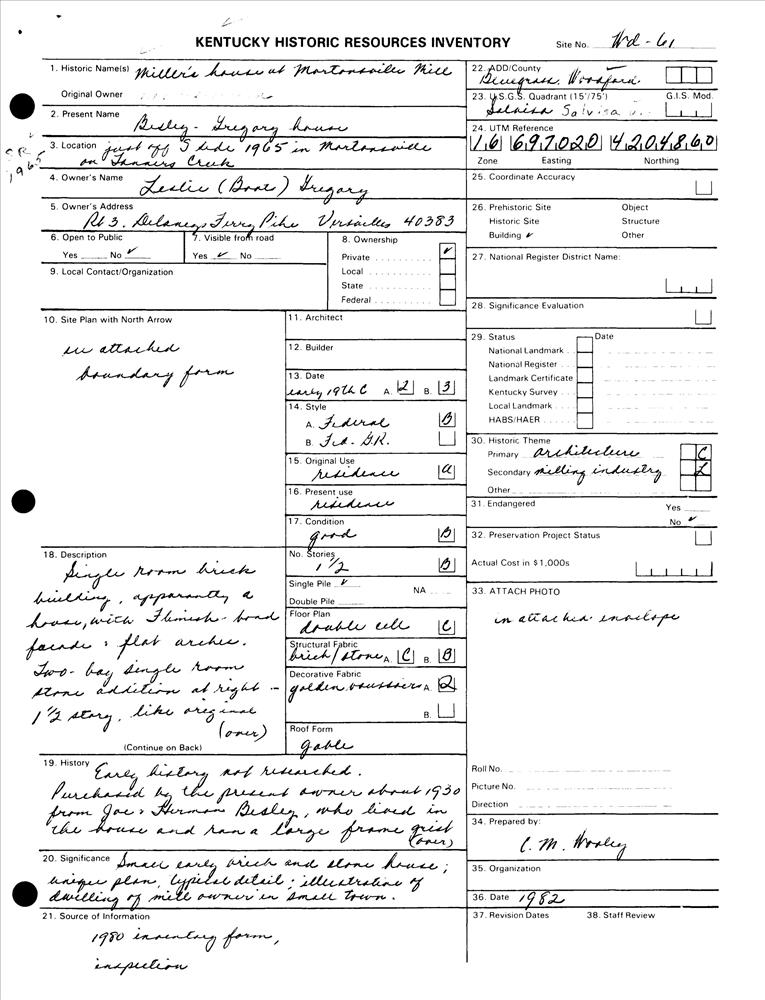 KENTUCKY HISTORIC RESOURCES INVENTORY
Site No. Wd-61
1. Historic Name(s) Miller's house at Mortonsville Mill
Original Owner
2. Present Name
Besley-Gregory house
SR 1965
3. Location just off S side 1965 in Mortonsville
on Tanners Creek
4. Owner's Name
Leslie (Boat) Gregory
5. Owner's Address
Rt 3. Delaneys Ferry Pike Versailles 40383
6. Open to Public
Yes No ✓
7. Visible from road
Yes ✓ No
8. Ownership
Private ✓
Local
State
Federal
9. Local Contact/Organization
10. Site Plan with North Arrow
in attached
boundary form
11. Architect
12. Builder
13. Date
early 19th C A. 2 B. 3
14. Style
A. Federal B
B. Fed-G.R.
15. Original Use
residence a
16. Present use
residence
17. Condition
good B
18. Description
Single room brick
building, apparantly a
house, with Flemish-bond
facade & flat arches.
Two-bay single room
stone addition at right -
1½ story, like original
(over)
(Continue on Back)
No. Stories
1½ B
Single Pile ✓
NA
Double Pile
Floor Plan
double cell C
Structural Fabric
brick/stone A. C B. B
Decorative Fabric
golden voussoirs A. 2
B.
Roof Form
gable
19. History Early history not researched.
Purchased by the present owner about 1930
from Joe & Herman Besley, who lived in
the house and ran a large frame grist
(over)
20. Significance Small early brick and stone house;
unique plan, typical detail; illustrative of
dwelling of mill owner in small town.
21. Source of Information
1980 inventory form,
inspection
22. ADD/County
Bluegrass, Woodford
23. U.S.G.S. Quadrant (15'/75') G.I.S. Mod.
Salvisa Salvisa
24. UTM Reference
16 697020 4204860
Zone Easting Northing
25. Coordinate Accuracy
26. Prehistoric Site Object
Historic Site Structure
Building ✓ Other
27. National Register District Name:
28. Significance Evaluation
29. Status Date
National Landmark
National Register
Landmark Certificate
Kentucky Survey
Local Landmark
HABS/HAER
30. Historic Theme
Primary architecture C
Secondary milling industry L
Other
31. Endangered Yes
No ✓
32. Preservation Project Status
Actual Cost in $1,000s
33. ATTACH PHOTO
in attached envelope
Roll No.
Picture No.
Direction
34. Prepared by:
C. M. Wooley
35. Organization
36. Date 1982
37. Revision Dates 38. Staff Review